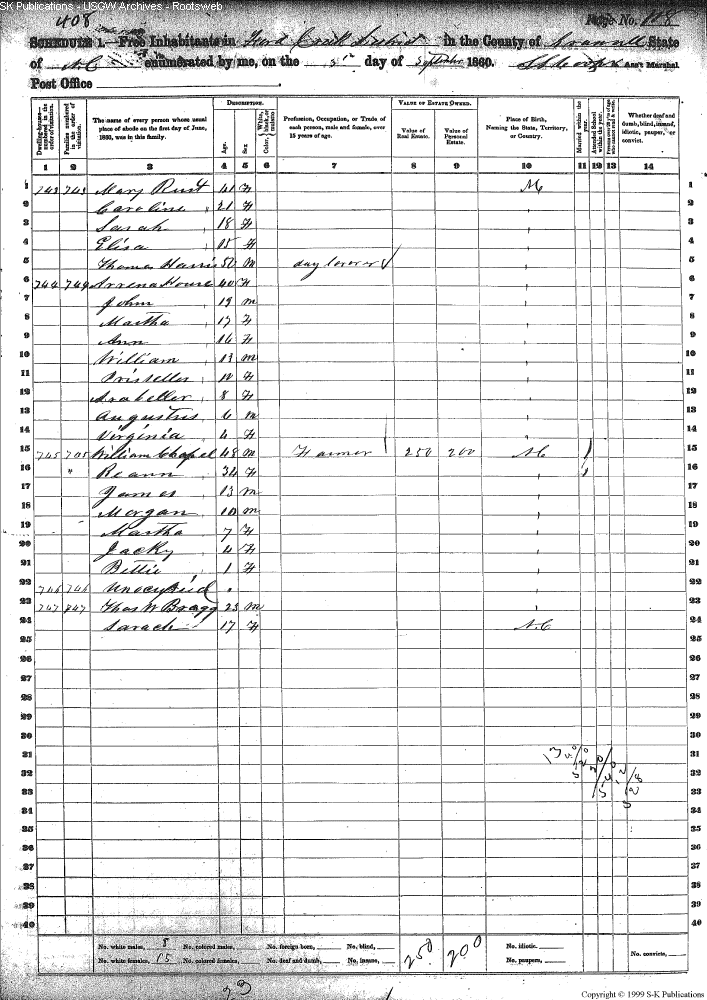 SK Publications - USGW Archives - Rootsweb
408
Page No. 118
SCHEDULE 1.—Free Inhabitants in Creek District in the County of State
of N C enumerated by me, on the 3rd day of September 1860. Ass't Marshal.
Post Office
DESCRIPTION. VALUE OF ESTATE OWNED.
Dwelling-houses numbered in the order of visitation. Families numbered in the order of visitation. The name of every person whose usual place of abode on the first day of June, 1860, was in this family. Age. Sex Color, White, black, or mulatto Profession, Occupation, or Trade of each person, male and female, over 15 years of age. Value of Real Estate. Value of Personal Estate. Place of Birth, Naming the State, Territory, or Country. Married within the year. Attended School within the year. Persons over 20 y'rs of age who cannot read & write. Whether deaf and dumb, blind, insane, idiotic, pauper, or convict.
1 2 3 4 5 6 7 8 9 10 11 12 13 14
1 743 743 Mary Rust 41 F N C 1
2 Caroline 21 F 2
3 Sarah 18 F 3
4 Elisa 15 F 4
5 Thomas Harris M day 5
6 744 744 Arrena House 40 F 6
7 John 19 m 7
8 Martha 17 F 8
9 Ann 16 F 9
10 William 13 m 10
11 Prisseller 10 F 11
12 Arabeller 8 F 12
13 Augustus 6 m 13
14 Virginia 4 F 14
15 745 745 William Chapel 48 m Farmer 250 200 N C / 15
16 " Reann 34 F 16
17 James 13 m 17
18 Morgan 10 m 18
19 Martha 7 F 19
20 Jacky 4 F 20
21 Bettie 1 F 21
22 746 746 22
23 747 747 Thos W Bragg 23 m 23
24 Sarah 17 F N.C 24
25 25
26 26
27 27
28 28
29 29
30 30
31 31
32 32
33 33
34 34
35 35
36 36
37 37
38 38
39 39
40 40
No. white males, 8 No. colored males, No. foreign born, No. blind, 250 200 No. idiotic.
No. white females, 15 No. colored females, No. deaf and dumb, No. insane, No. paupers, No. convicts,
23
Copyright © 1999 S-K Publications